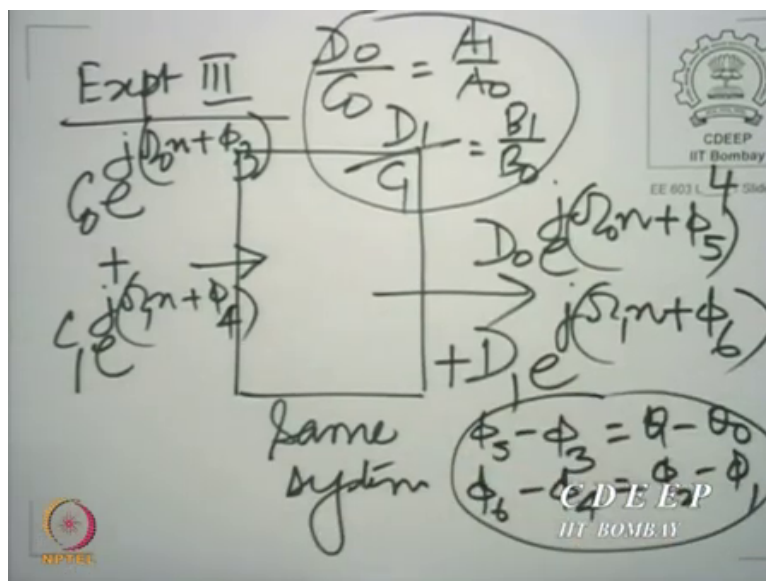 Expt III
D₀/C₀ = A₁/A₀
D₁/C₁ = B₁/B₀
C₀e^j(Ω₀n + ϕ₃)
+
C₁e^j(Ω₁n + ϕ₄)
D₀e^j(Ω₀n + ϕ₅)
+ D₁e^j(Ω₁n + ϕ₆)
Same
system
ϕ₅ - ϕ₃ = θ₁ - θ₀
ϕ₆ - ϕ₄ = ϕ₂ - ϕ₁
CDEEP
IIT Bombay
EE 603 L
Slide
4
CDEEP
IIT BOMBAY
NPTEL